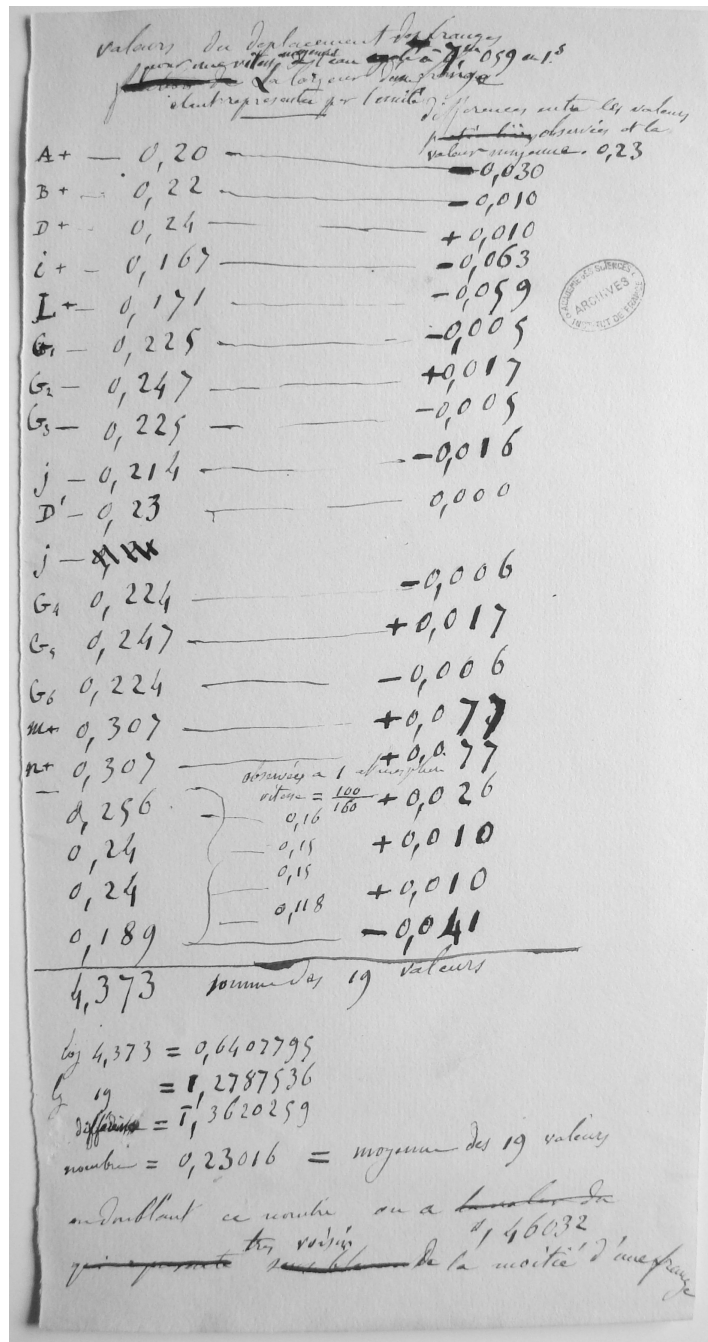 valeurs du deplacement des franges
pour une vitesse moyenne de l'eau à 7,m 059 en 1.s
la largeur d'une frange
étant representée par l'unité
differences entre les valeurs
observées et la
valeur moyenne. 0,23
A+ — 0,20 — -0,030
B+ — 0,22 — -0,010
D+ — 0,24 — +0,010
i+ — 0,167 — -0,063
I+ — 0,171 — -0,059
G1 — 0,225 — -0,005
G2 — 0,247 — +0,017
G3 — 0,225 — -0,005
j — 0,214 — -0,016
D' — 0,23 — 0,000
j —
G4 0,224 — -0,006
G5 0,247 — +0,017
G6 0,224 — -0,006
m+ 0,307 — +0,077
n+ 0,307 — +0,077
observées à 1 atmosphere
vitesse = 100/160
0,256 — 0,16 +0,026
0,24 — 0,15 +0,010
0,24 — 0,15 +0,010
0,189 — 0,118 -0,041
4,373 somme des 19 valeurs
log 4,373 = 0,6407795
lg 19 = 1,2787536
différence = 1̄,3620259
nombre = 0,23016 = moyenne des 19 valeurs
en doublant ce nombre on a la valeur du
0,46032
tres voisin de la moitié d'une frange
ACADEMIE DES SCIENCES
ARCHIVES
INSTITUT DE FRANCE